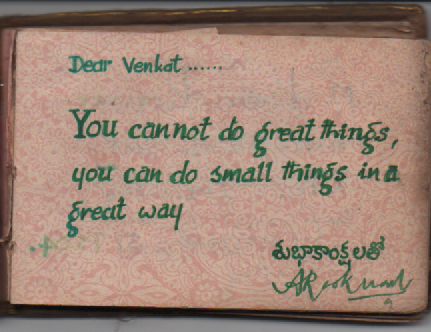 Dear Venkat ......
You cannot do great things,
you can do small things in a
great way
శుభాకాంక్షలతో